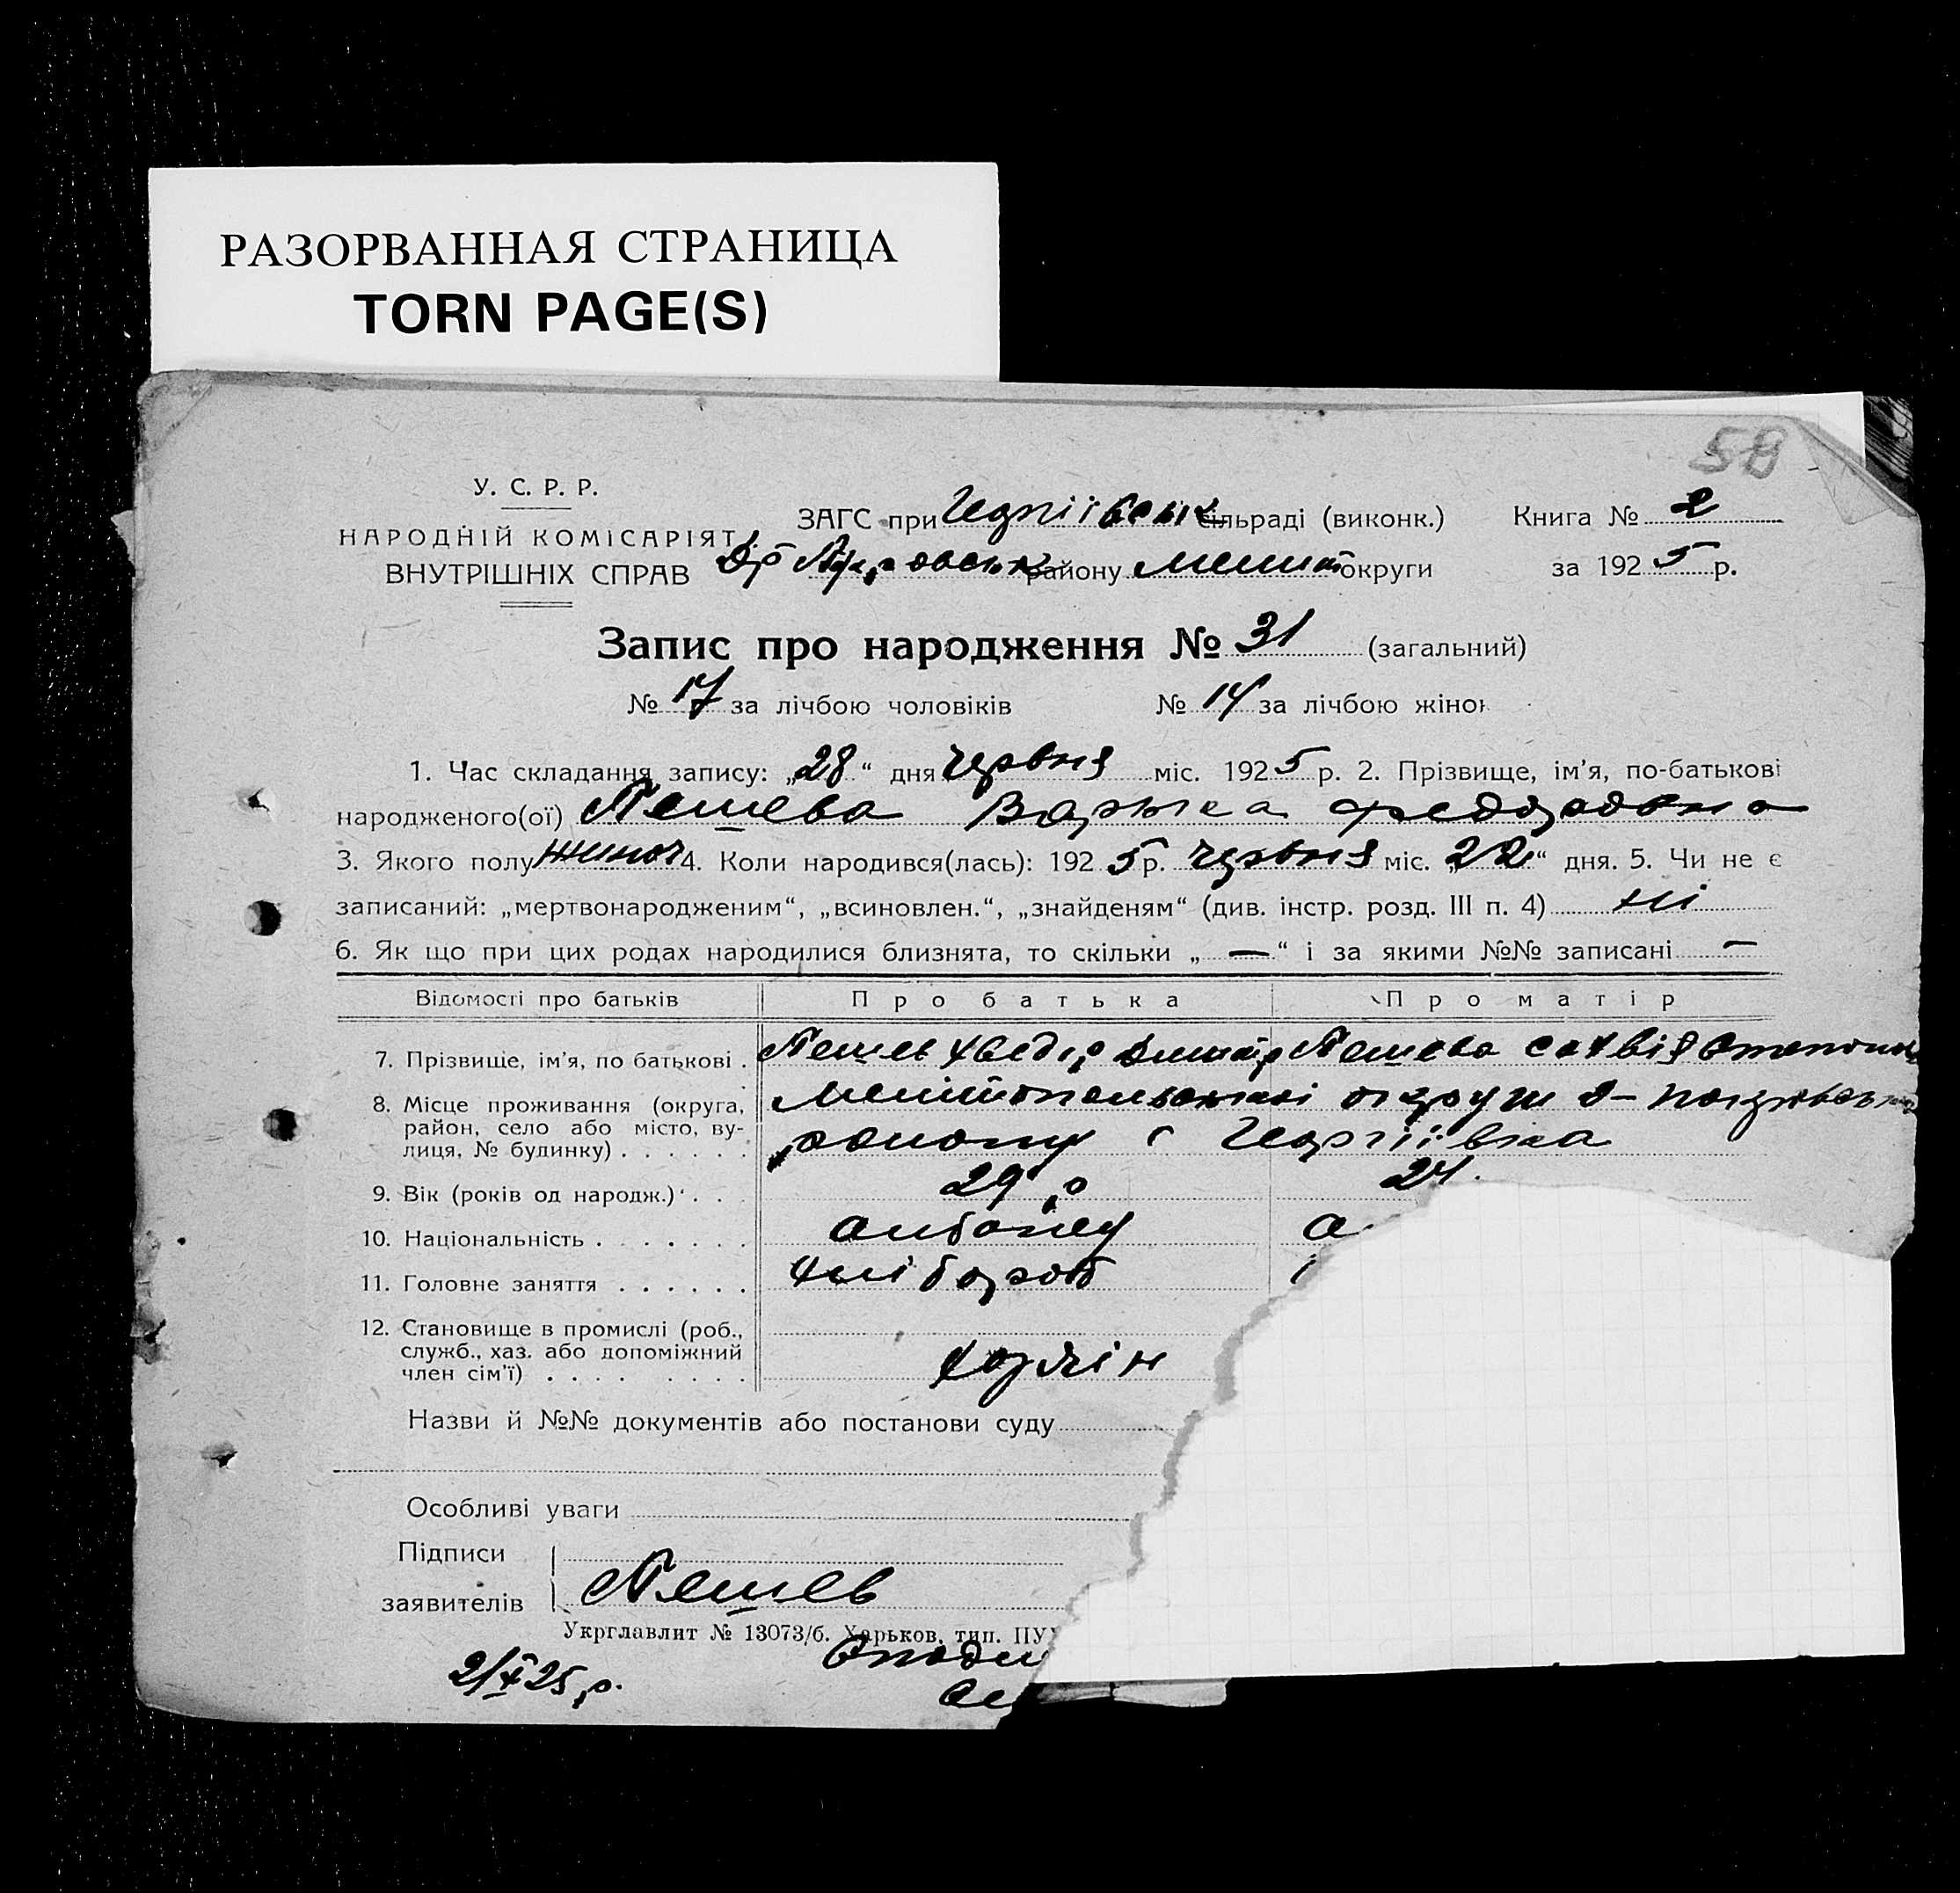 РАЗОРВАННАЯ СТРАНИЦА
TORN PAGE(S)
58
У. С. Р. Р.
НАРОДНІЙ КОМІСАРІЯТ
ВНУТРІШНІХ СПРАВ
ЗАГС при сільраді (виконк.) Книга № 2
району Меліт округи за 1925 р.
Запис про народження № 31 (загальний)
№ 17 за лічбою чоловіків № 14 за лічбою жінок
1. Час складання запису: „28“ дня червня міс. 1925 р. 2. Прізвище, ім'я, по-батькові
народженого(ої) Пешева Варька Федоровна
3. Якого полу жиноч 4. Коли народився(лась): 1925 р. червня міс. „22“ дня. 5. Чи не є
записаний: „мертвонародженим“, „всиновлен.“, „знайденям“ (див. інстр. розд. III п. 4) ні
6. Як що при цих родах народилися близнята, то скільки „—“ і за якими №№ записані —
Відомості про батьків Про батька Про матір
7. Прізвище, ім'я, по батькові . Пешев Хведір Дмитр Пешева Степанов
8. Місце проживання (округа, Мелітопольської округи
район, село або місто, ву- району с Георгіївка
лиця, № будинку) . . . . . .
9. Вік (років од народж.) . . . 29 р 24.
10. Національність . . . . . . . албанец а
11. Головне заняття . . . . . . хлібороб
12. Становище в промислі (роб.,
служб., хаз. або допоміжний
член сім'ї) . . . . . . . .
Назви й №№ документів або постанови суду
Особливі уваги
Підписи
заявителів Пешев
Укрглавлит № 13073/б. Харьков, тип. ПУ
21/X 25 р.